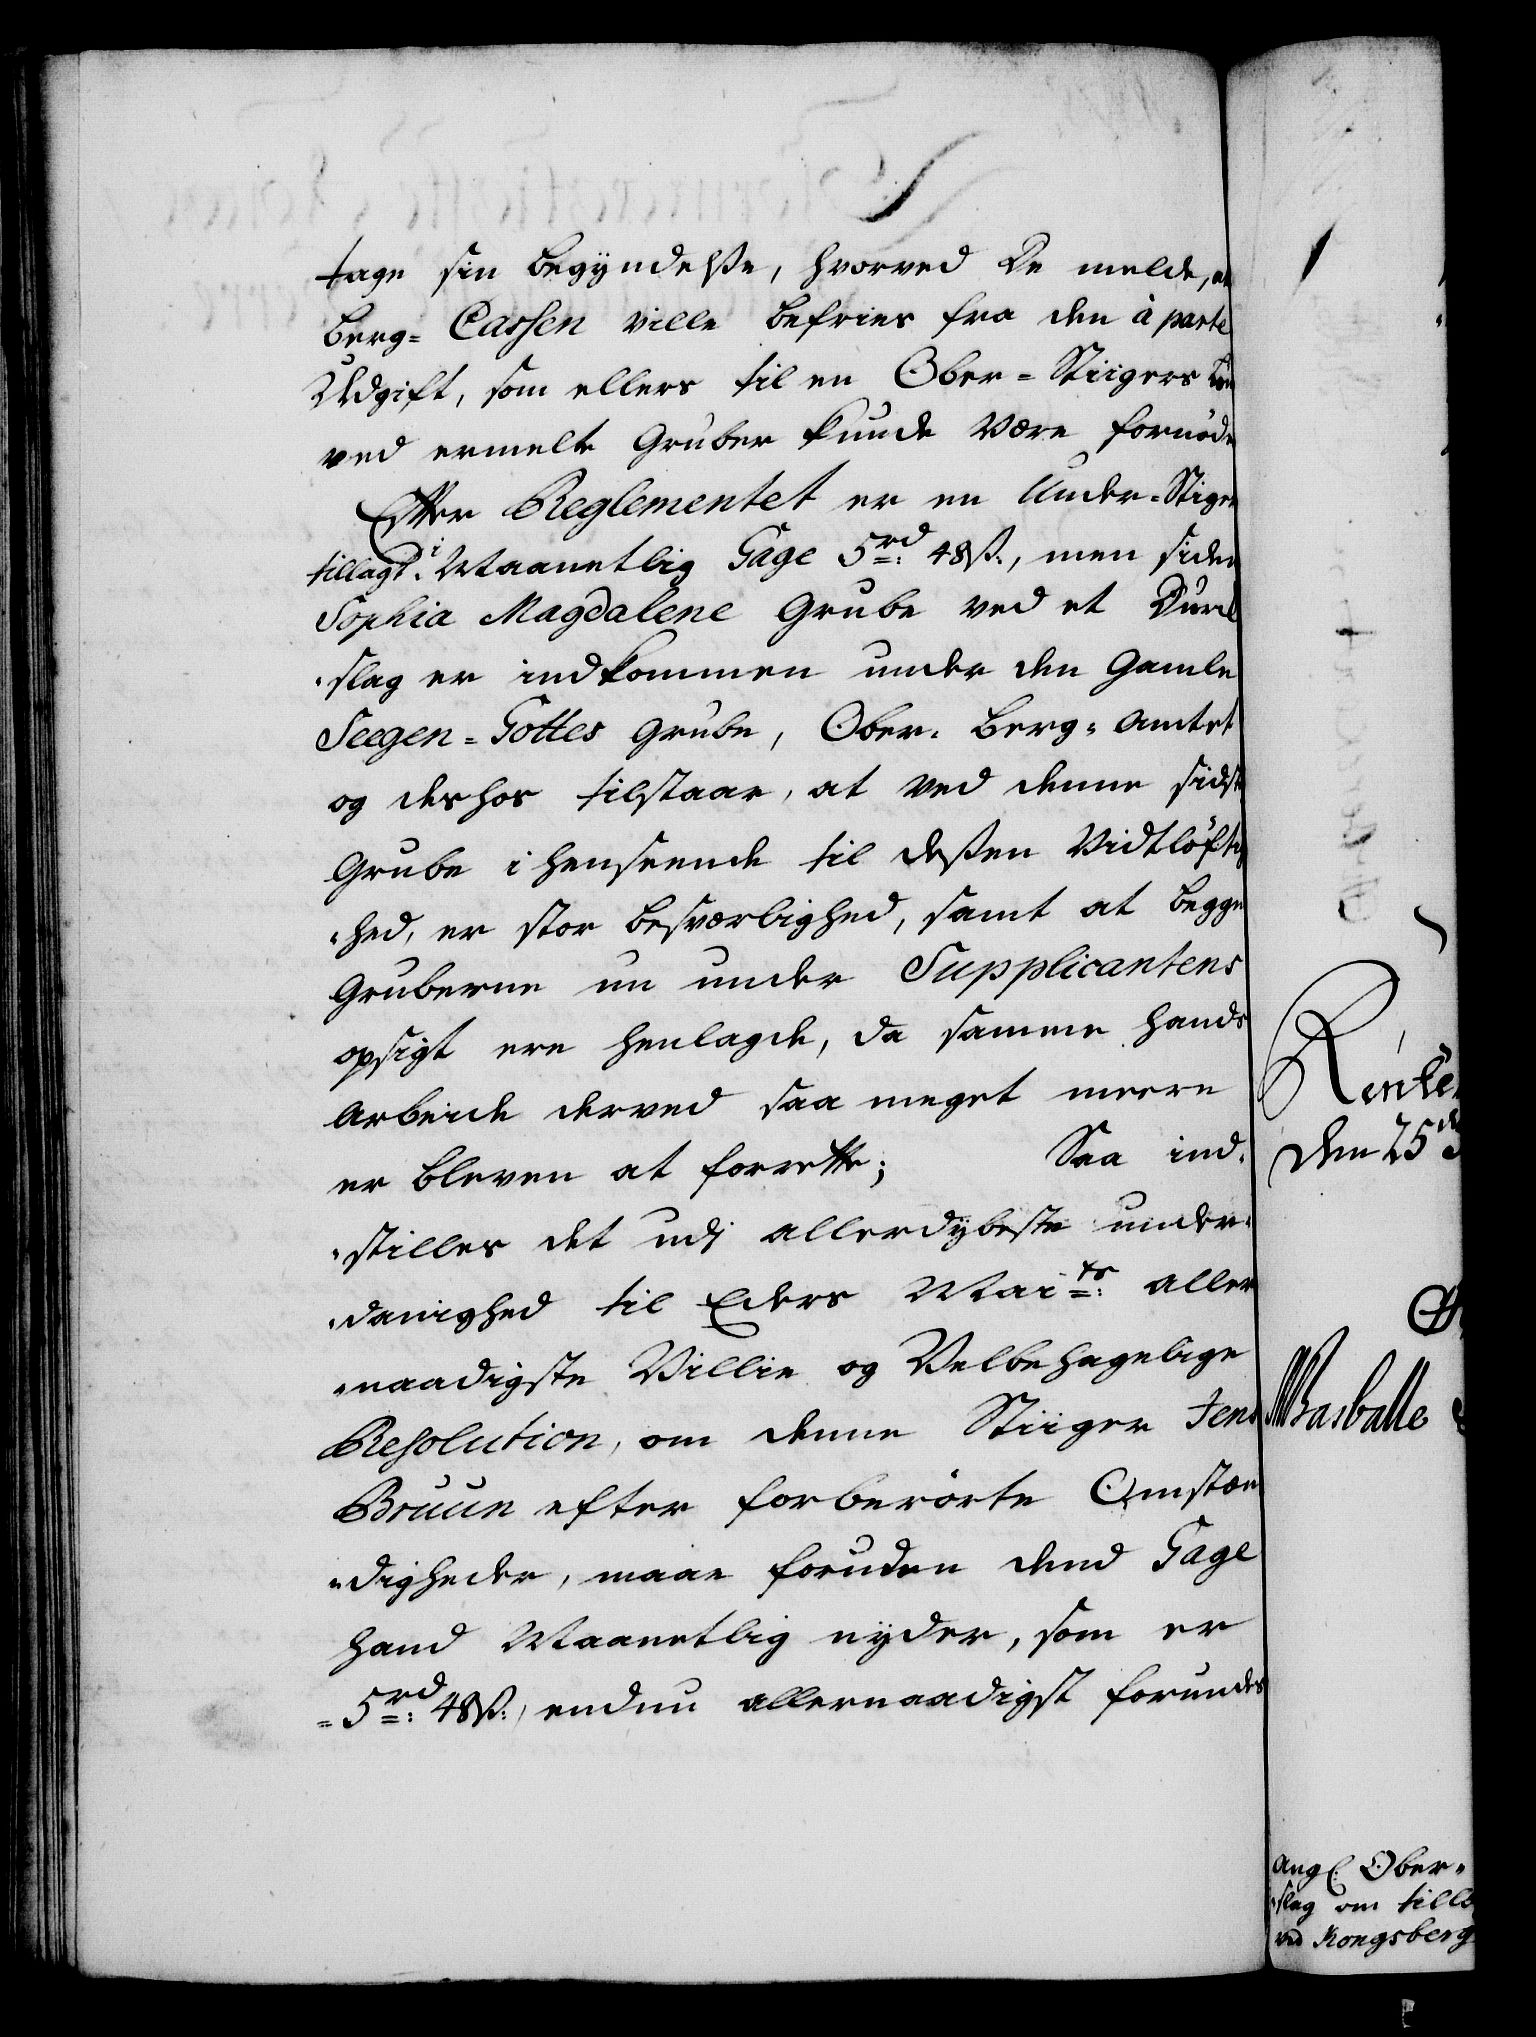 tage sin begÿndelsse, hvorved de melde, at
Berg- Cassen ville befries fra den à parte
Udgift, som ellers til en Ober-Stiigers Løn
ved ermelte Gruber kunde være fornøde
Efter Reglementet er en Under-Stiger
tillagt i Maanetlig Gage 5 rd: 48 ß:, men siden
Sophia Magdalene Grube ved et Durch
slag er indkommen under den gamle
Seegen-Gottes Grube, Ober-Berg-Amtet
og derhos tilstaar, at ved denne sidste
Grube i henseende til dessen Vidtløftig
hed, er stor besværlighed, samt at begge
Gruberne nu under Supplicantens
opsigt ere henlagde, da samme hands
Arbeide derved saa meget meere
er bleven at forrette; Saa ind-
stilles det udj allerdÿbeste under-
danighed til Eders Maits: aller
naadigste Villie og Velbehagelige
Resolution, om denne Stiiger Jens
Bruun efter forberørte Omstæn
digheder, maae foruden dend Gage
hand Maanetlig nÿder, som er
5 rd: 48 ß:, endnu allernaadigst forundes
Rente
den 25de
Basballe
Angl: Ober-
slag om till
ved Kongsberg